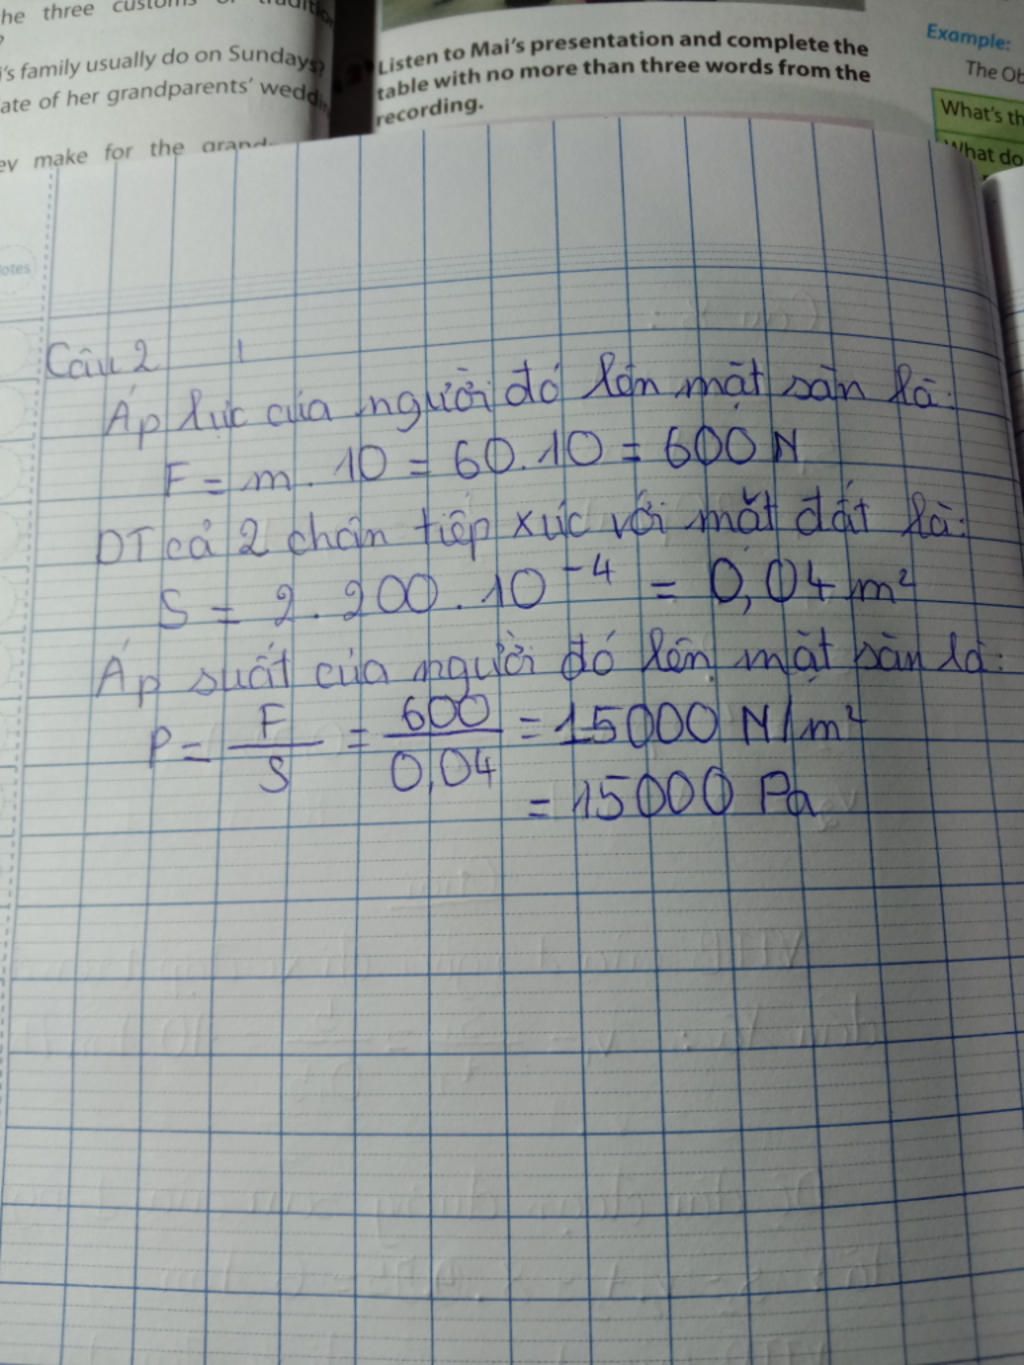 he three customs
i's family usually do on Sundays?
ate of her grandparents'
ey make for the
Listen to Mai's presentation and complete the
table with no more than three words from the
recording.
Example:
The Ob
What's th
What do
otes
Câu 2
Áp lực của người đó lên mặt sàn là:
F = m . 10 = 60.10 = 600 N
DT cả 2 chân tiếp xúc với mặt đất là:
S = 2 . 200 . 10⁻⁴ = 0,04 m²
Áp suất của người đó lên mặt sàn là:
P = F/S = 600/0,04 = 15000 N/m²
= 15000 Pa